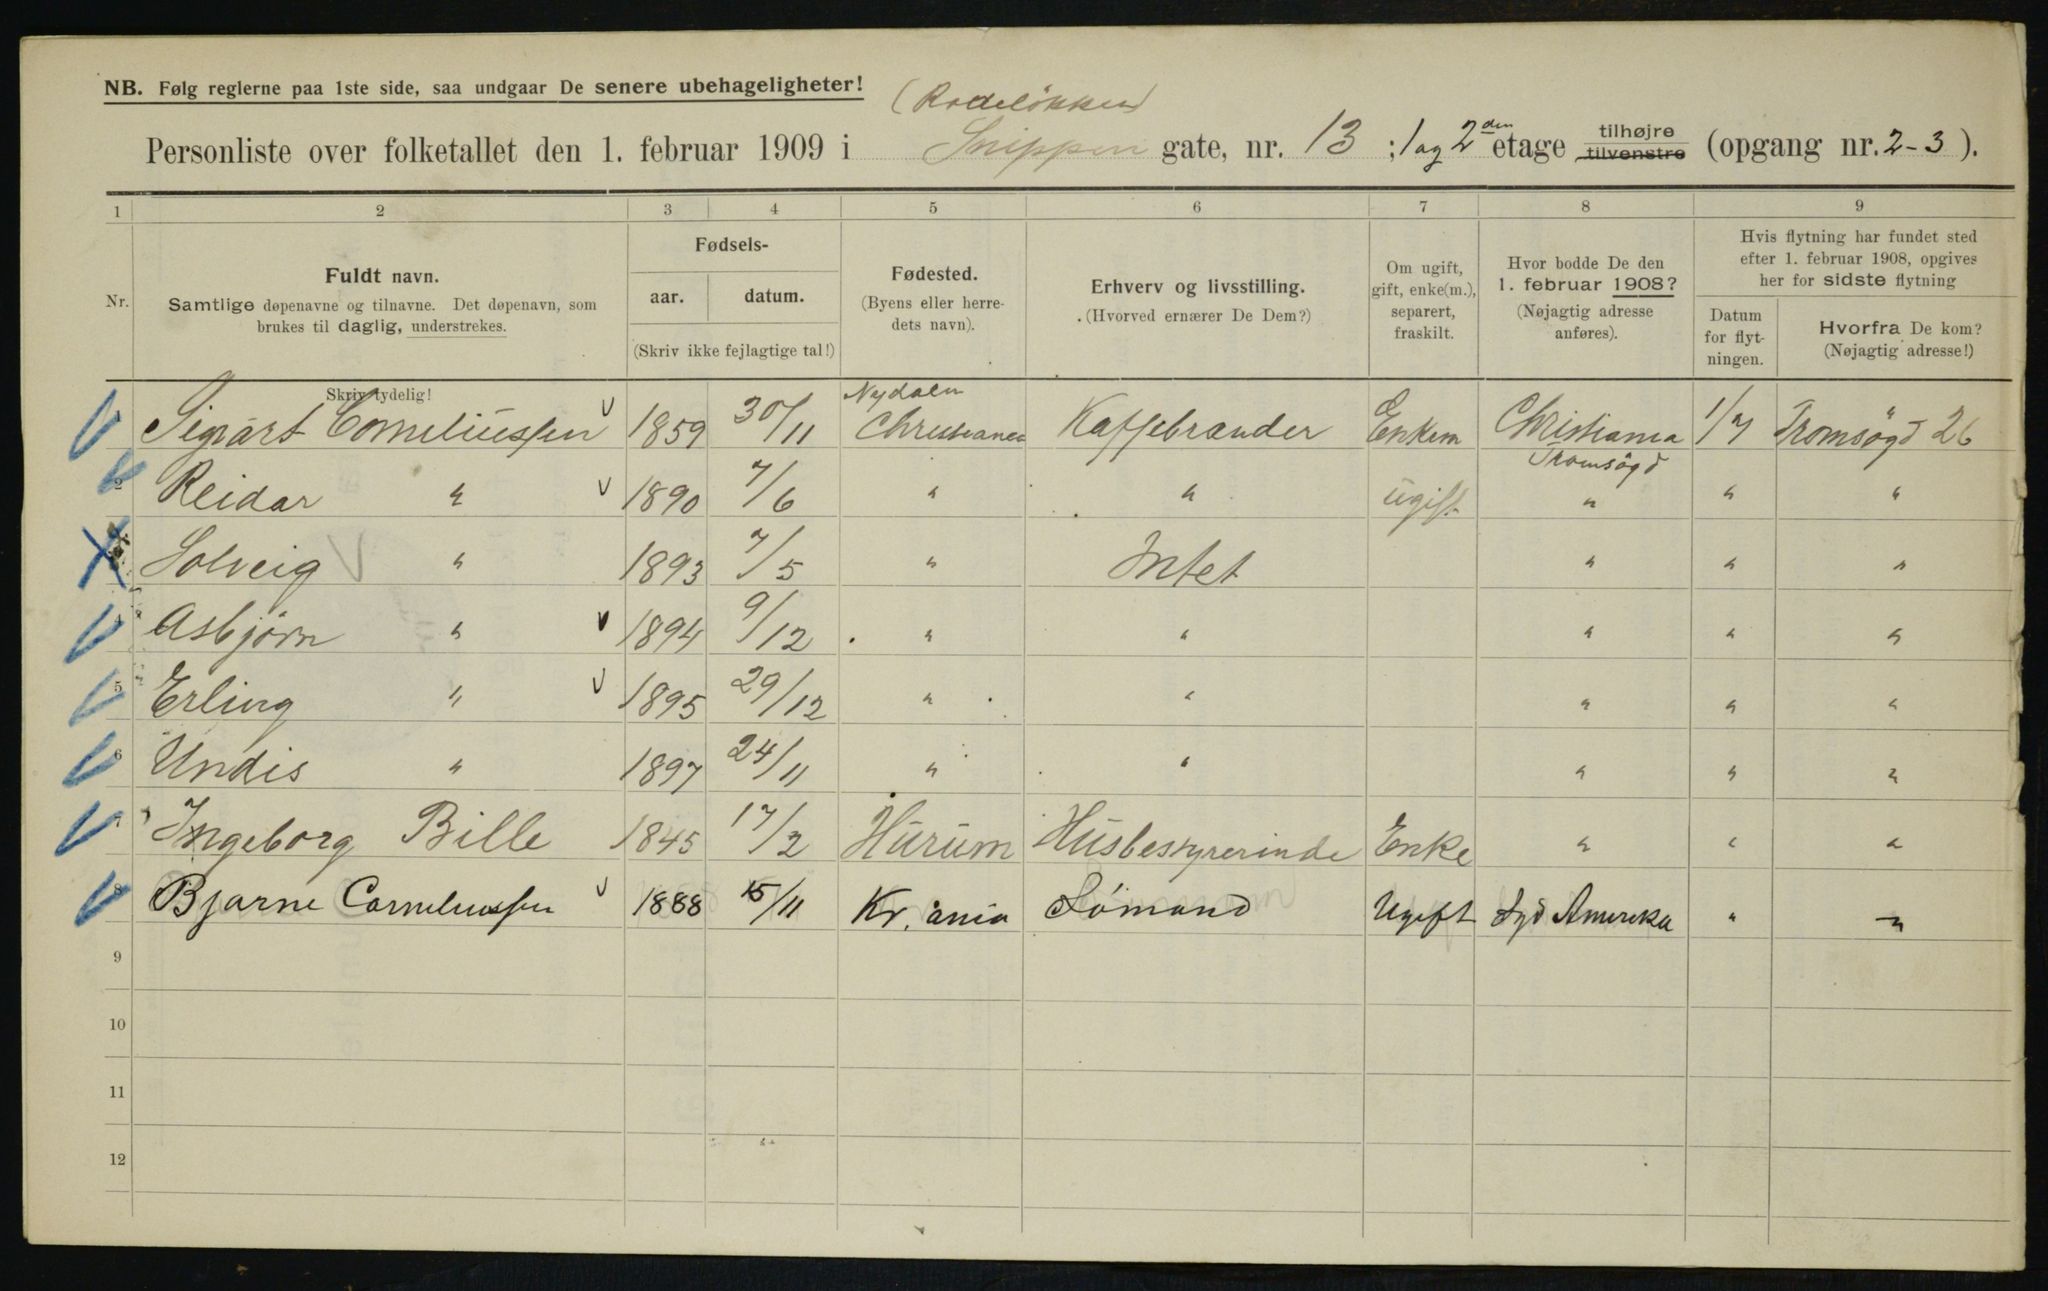 NB. Følg reglerne paa 1ste side, saa undgaar De senere ubehageligheter!
(Rodeløkken)
Personliste over folketallet den 1. februar 1909 i Snippen gate, nr. 13 ; 1 og 2den etage tilhøjre tilvenstre (opgang nr. 2-3 ).
1 2 3 4 5 6 7 8 9
Nr.
Fuldt navn.
Samtlige døpenavne og tilnavne. Det døpenavn, som
brukes til daglig, understrekes.
Skriv tydelig!
Fødsels-
aar. datum.
(Skriv ikke fejlagtige tal!)
Fødested.
(Byens eller herre-
dets navn).
Erhverv og livsstilling.
(Hvorved ernærer De Dem?)
Om ugift,
gift, enke(m.),
separert,
fraskilt.
Hvor bodde De den
1. februar 1908?
(Nøjagtig adresse
anføres).
Hvis flytning har fundet sted
efter 1. februar 1908, opgives
her for sidste flytning
Datum
for flyt-
ningen.
Hvorfra De kom?
(Nøjagtig adresse!)
Nydalen
Sigvart Corneliussen 1859 30/11 Christiania Kaffebrænder Enkem Christiania 1/7 Tromsögd 26
Tromsögd
2 Reidar " 1890 7/6 " " ugift " " "
Solveig " 1893 7/5 " Intet " " "
Asbjørn " 1894 9/12 " " " " "
5 Erling " 1895 29/12 " " " " "
6 Undis " 1897 24/11 " " " " "
7 Ingeborg Bille 1845 17/2 Hurum Husbestyrerinde Enke " " "
8 Bjarne Corneliussen 1888 15/11 Kr.ania Sømand Ugift Syd Amerika " "
9
10
11
12